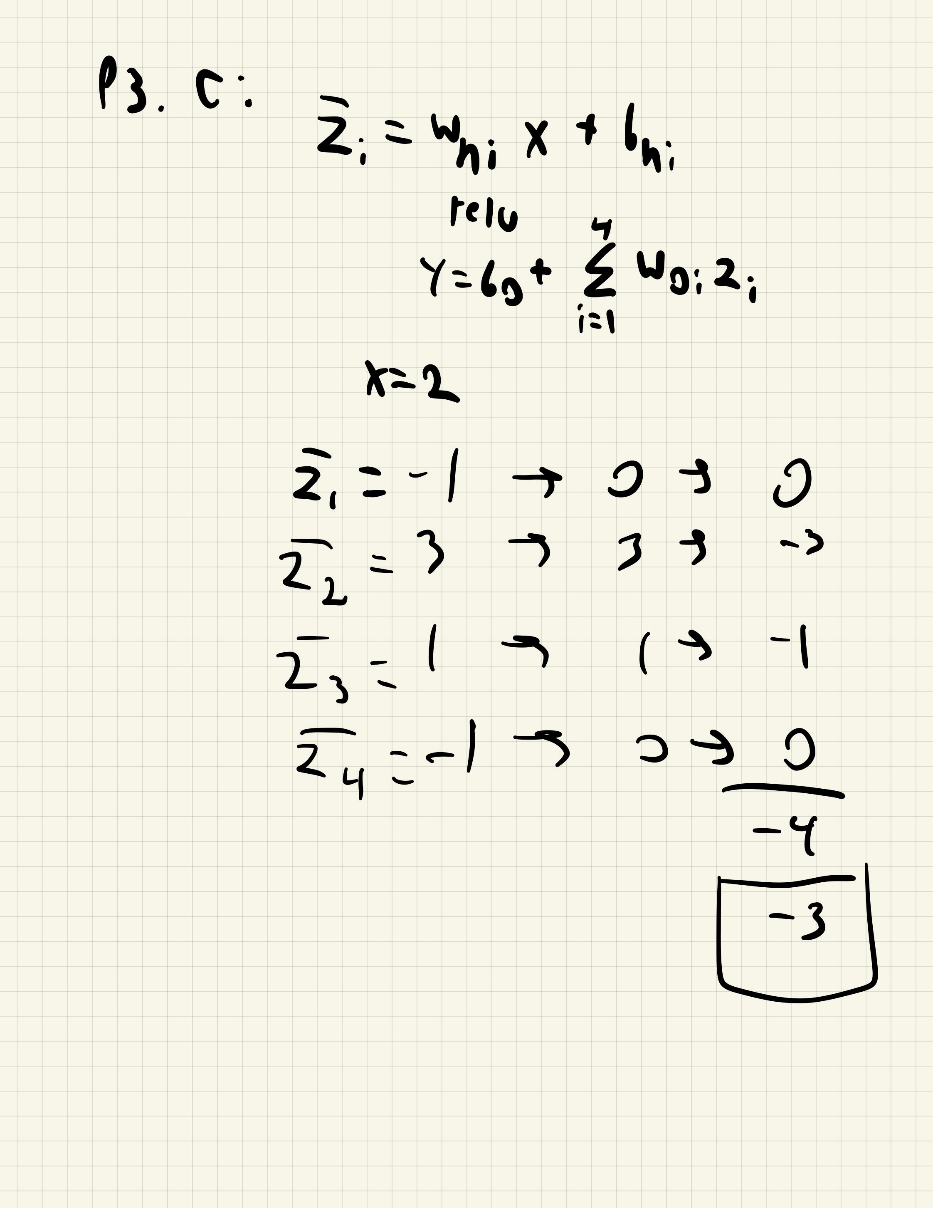 P3. C:
z̄ᵢ = w_hᵢ x + b_hᵢ
relu
Y = b₀ + Σ_{i=1}^{4} w₀ᵢ zᵢ
x = 2
z̄₁ = -1 → 0 → 0
z̄₂ = 3 → 3 → -3
z̄₃ = 1 → 1 → -1
z̄₄ = -1 → 0 → 0
-4
-3